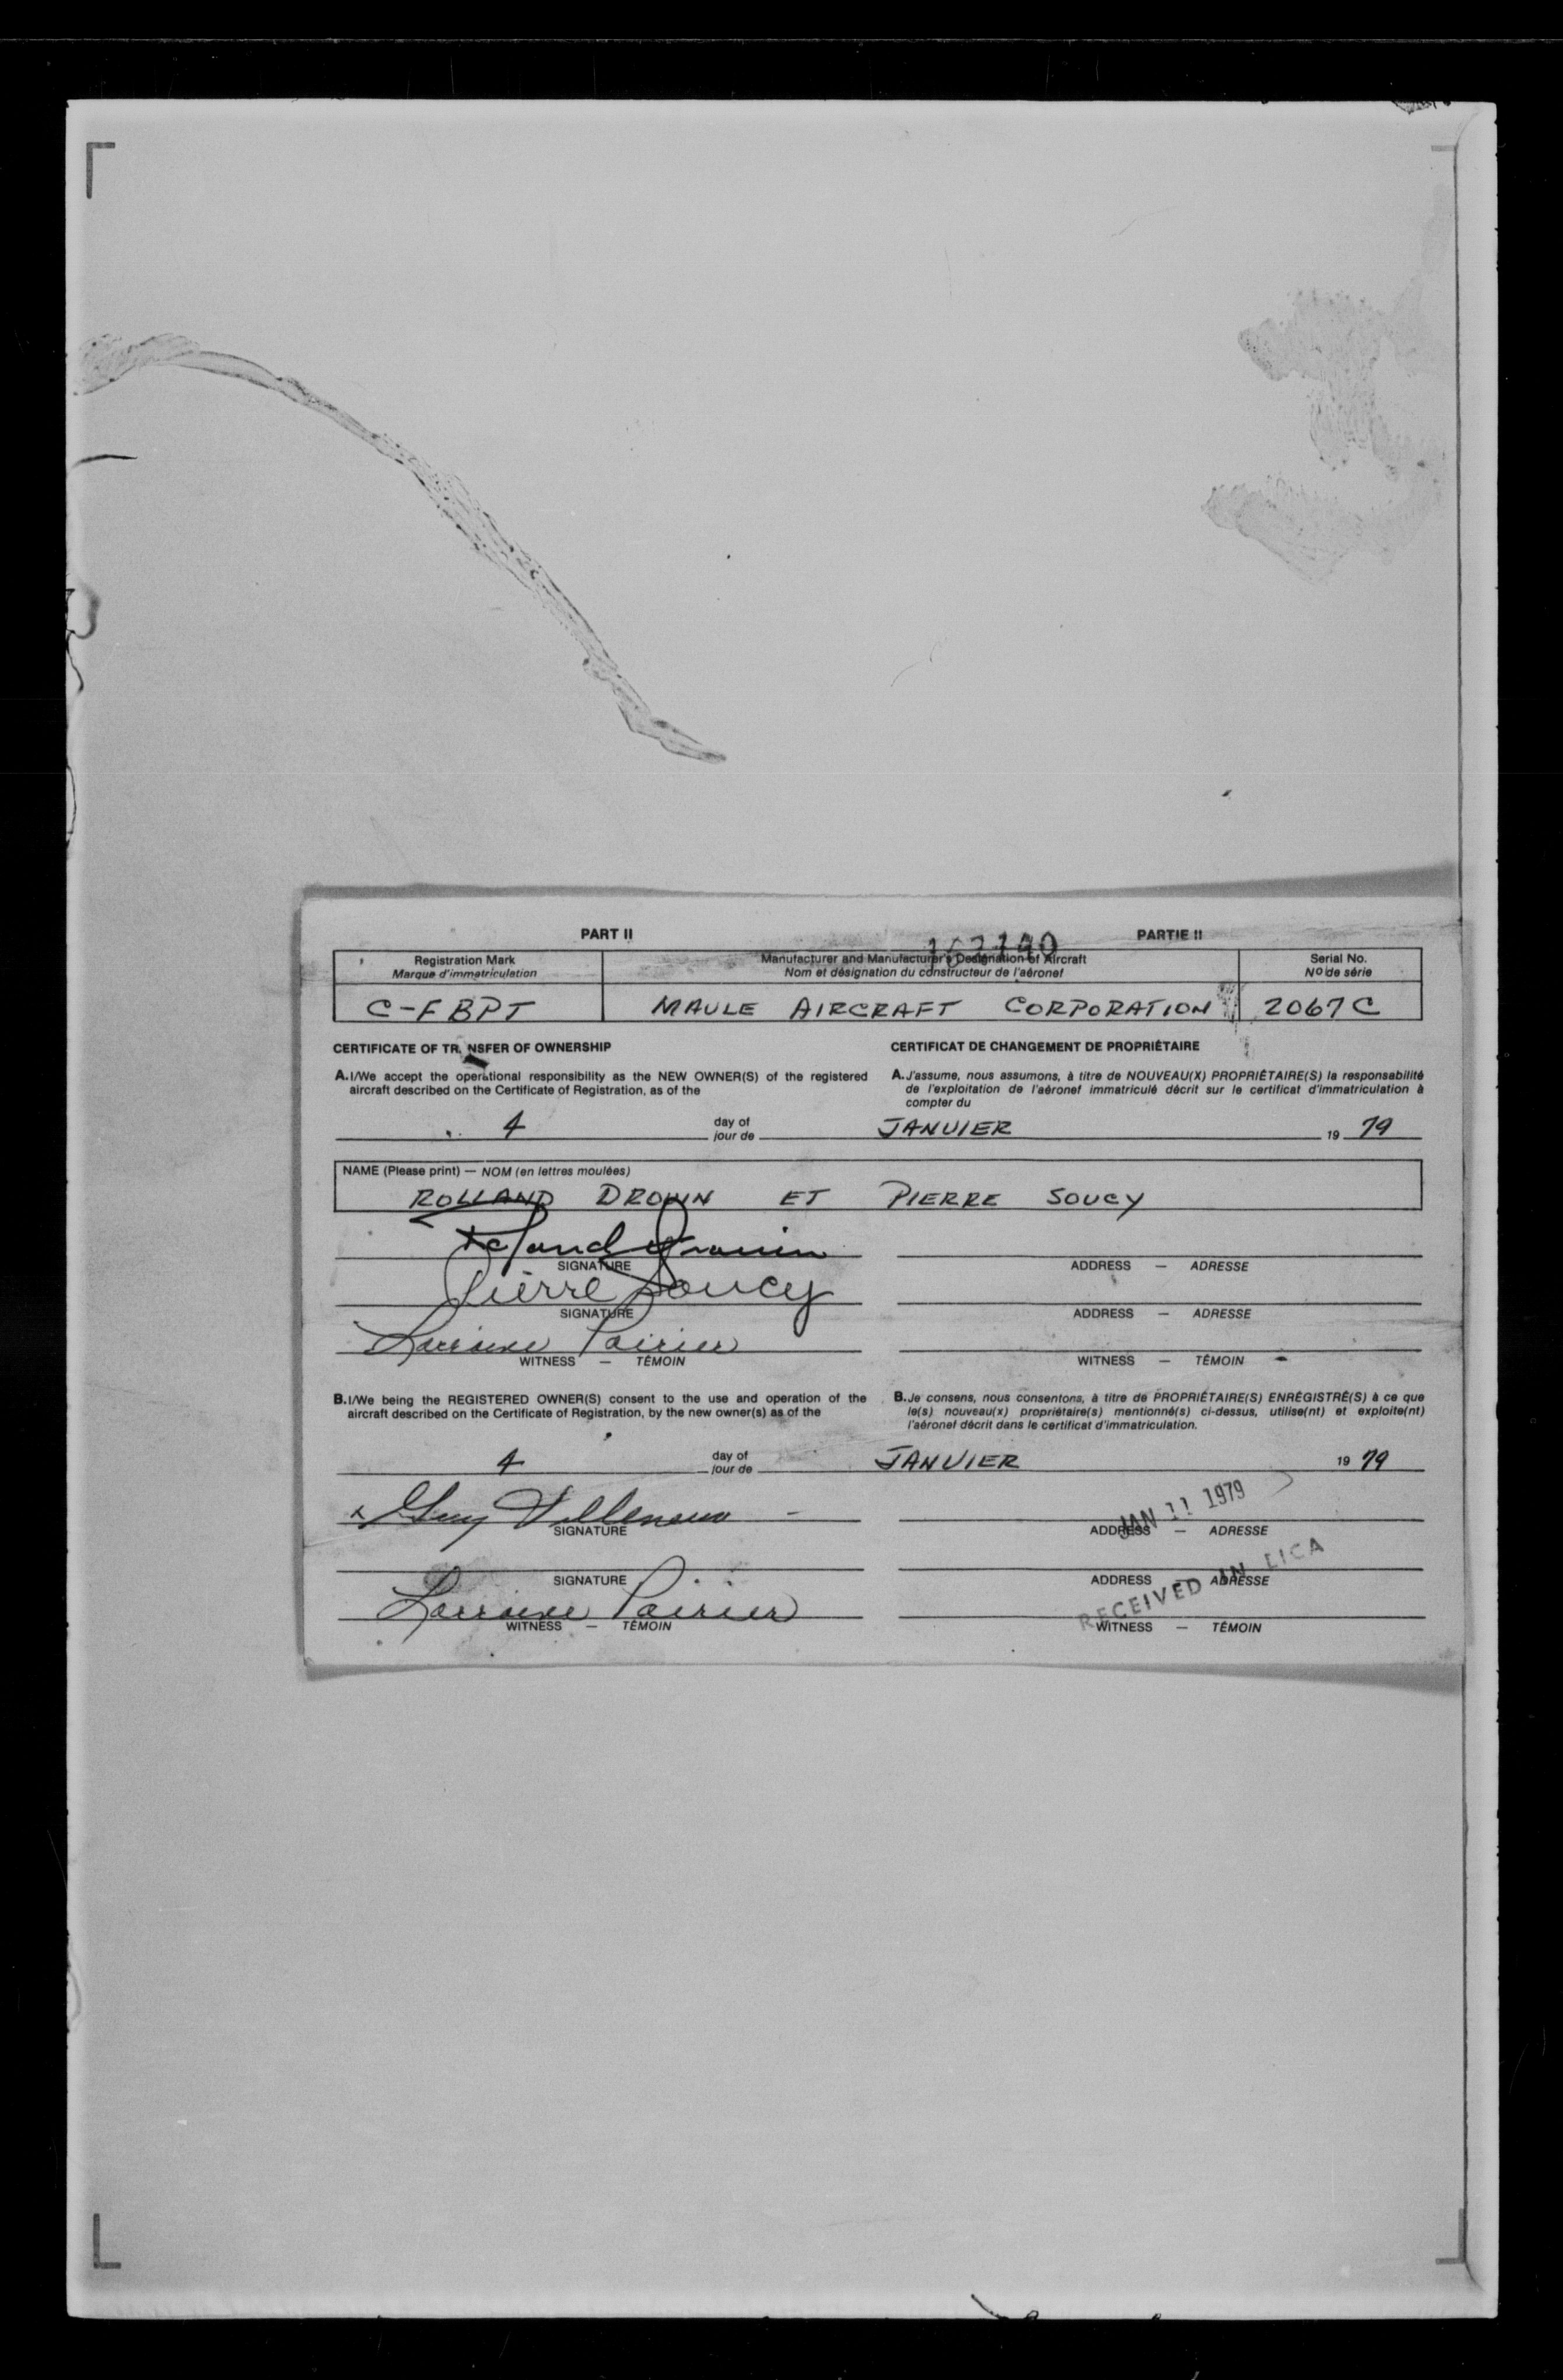 PART II PARTIE II
Registration Mark Manufacturer and Manufacturer's Designation of Aircraft Serial No.
Marque d'immatriculation Nom et désignation du constructeur de l'aéronef Nº de série
C-FBPT MAULE AIRCRAFT CORPORATION 2067C
CERTIFICATE OF TR NSFER OF OWNERSHIP
A. I/We accept the operational responsibility as the NEW OWNER(S) of the registered
aircraft described on the Certificate of Registration, as of the
CERTIFICAT DE CHANGEMENT DE PROPRIÉTAIRE
A. J'assume, nous assumons, à titre de NOUVEAU(X) PROPRIÉTAIRE(S) la responsabilité
de l'exploitation de l'aéronef immatriculé décrit sur le certificat d'immatriculation à
compter du
4 day of JANVIER 19 79
jour de
NAME (Please print) — NOM (en lettres moulées)
ROLLAND DROUIN ET PIERRE SOUCY
Roland Drouin
SIGNATURE ADDRESS — ADRESSE
Pierre Soucy
SIGNATURE ADDRESS — ADRESSE
Lorraine Poirier
WITNESS — TÉMOIN WITNESS — TÉMOIN
B. I/We being the REGISTERED OWNER(S) consent to the use and operation of the
aircraft described on the Certificate of Registration, by the new owner(s) as of the
B. Je consens, nous consentons, à titre de PROPRIÉTAIRE(S) ENRÉGISTRÉ(S) à ce que
le(s) nouveau(x) propriétaire(s) mentionné(s) ci-dessus, utilise(nt) et exploite(nt)
l'aéronef décrit dans le certificat d'immatriculation.
4 day of JANVIER 19 79
jour de
x Guy Villeneuve
JAN 11 1979
SIGNATURE ADDRESS — ADRESSE
RECEIVED IN LICA
SIGNATURE ADDRESS — ADRESSE
Lorraine Poirier
WITNESS — TÉMOIN WITNESS — TÉMOIN